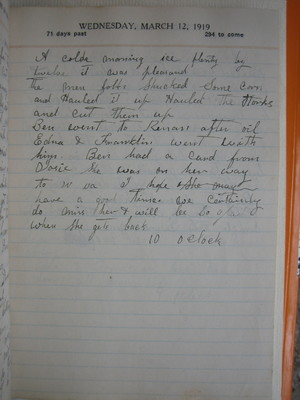 WEDNESDAY, MARCH 12, 1919
71 days past 294 to come
A colde morning ice plenty by
twelve it was pleasand
the men folts Shucked Some Corn
and Hauled it up Hauled the
and cut them up
Ben went to after oil
Edna & Franklin went with
him Ben had a Card from
She was on her way
to I hope She may
have a good time. we Certainly
do miss her & will be So glad
when She gets back
10 oclock